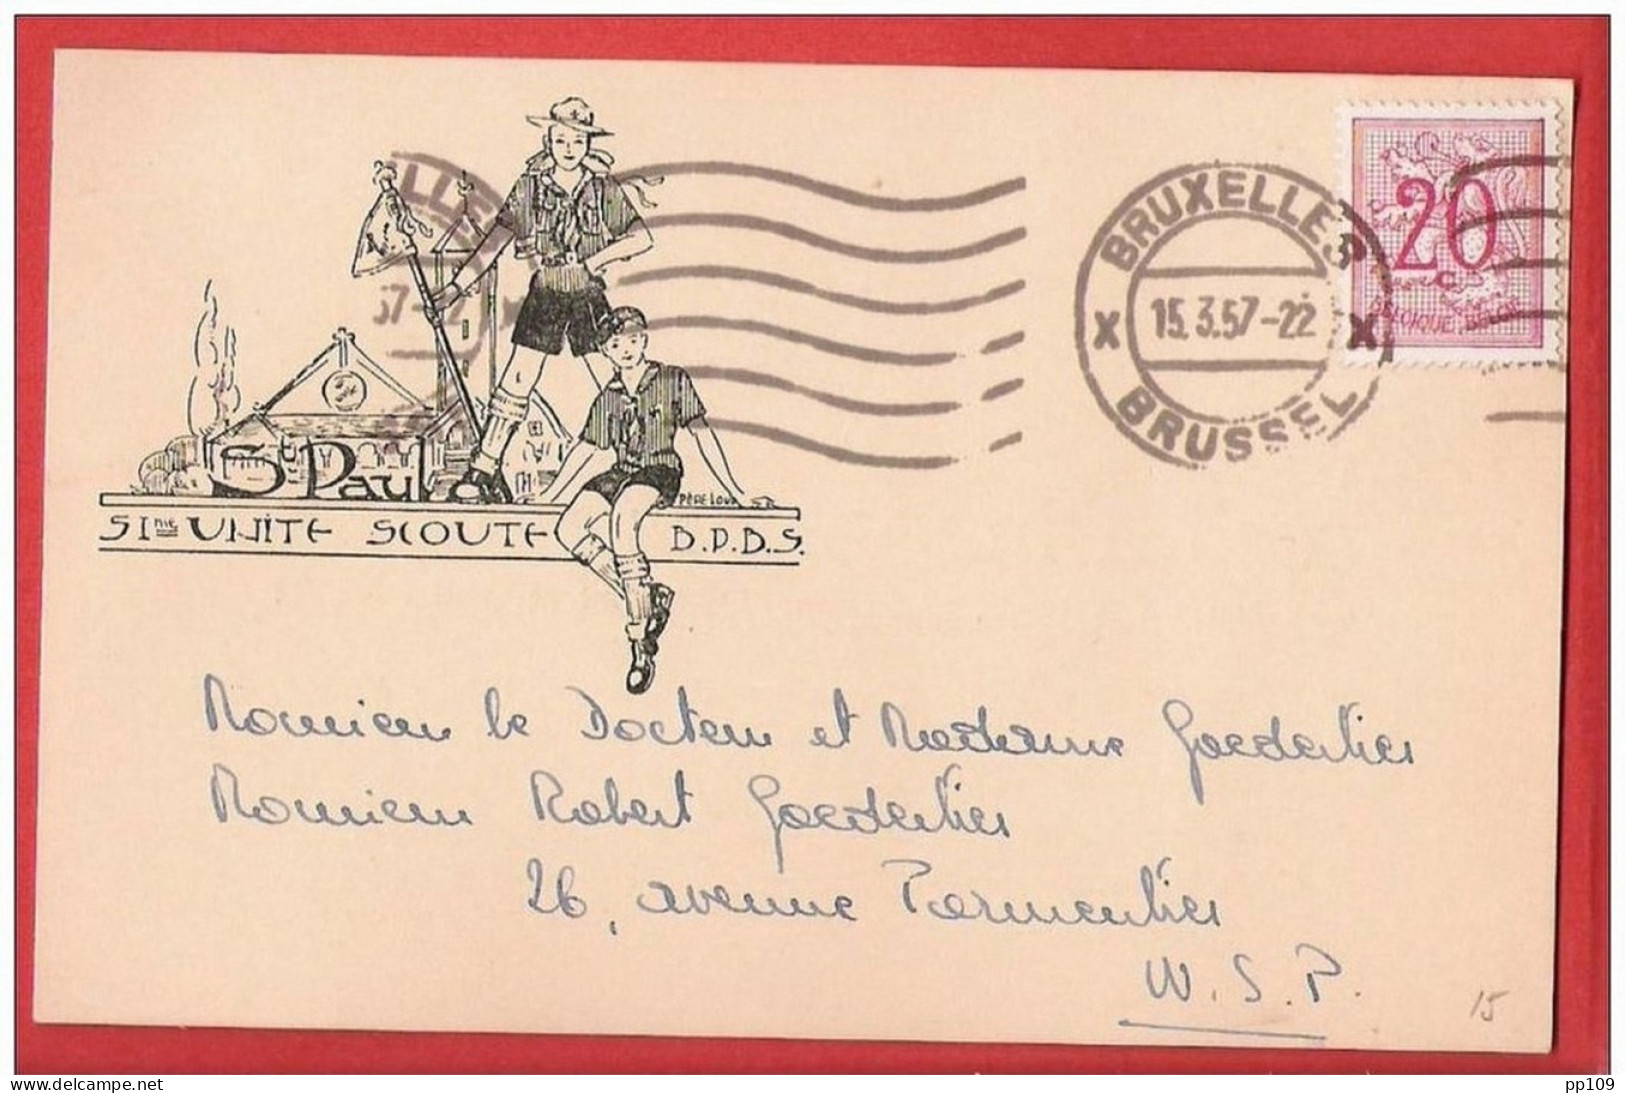 BRUXELLES
15.3.57-22
X X
BRUSSEL
20
C
BELGIQUE BELGIË
LLES
57-2
St Paul
PÈRE LOUP S.R.
51me UNITE SCOUTE B.P.B.S.
Monsieur le Docteur et Madame Goedertier
Monsieur Robert Goedertier
26, avenue Parmentier
W.S.P.
15
pp109